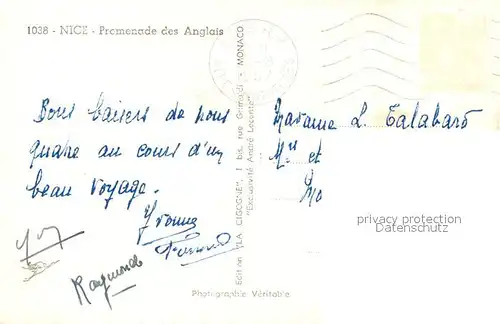 1038 - NICE - Promenade des Anglais
Bons baisers de nous
quatre au cours d'un
beau voyage.
Yvonne
Raymonde
Madame L. Talabard
Mr et
privacy protection
Datenschutz
Edition "LA CIGOGNE", 1 bis, rue Grimaldi - MONACO
"Exclusivité André Lecoette"
Photographie Véritable